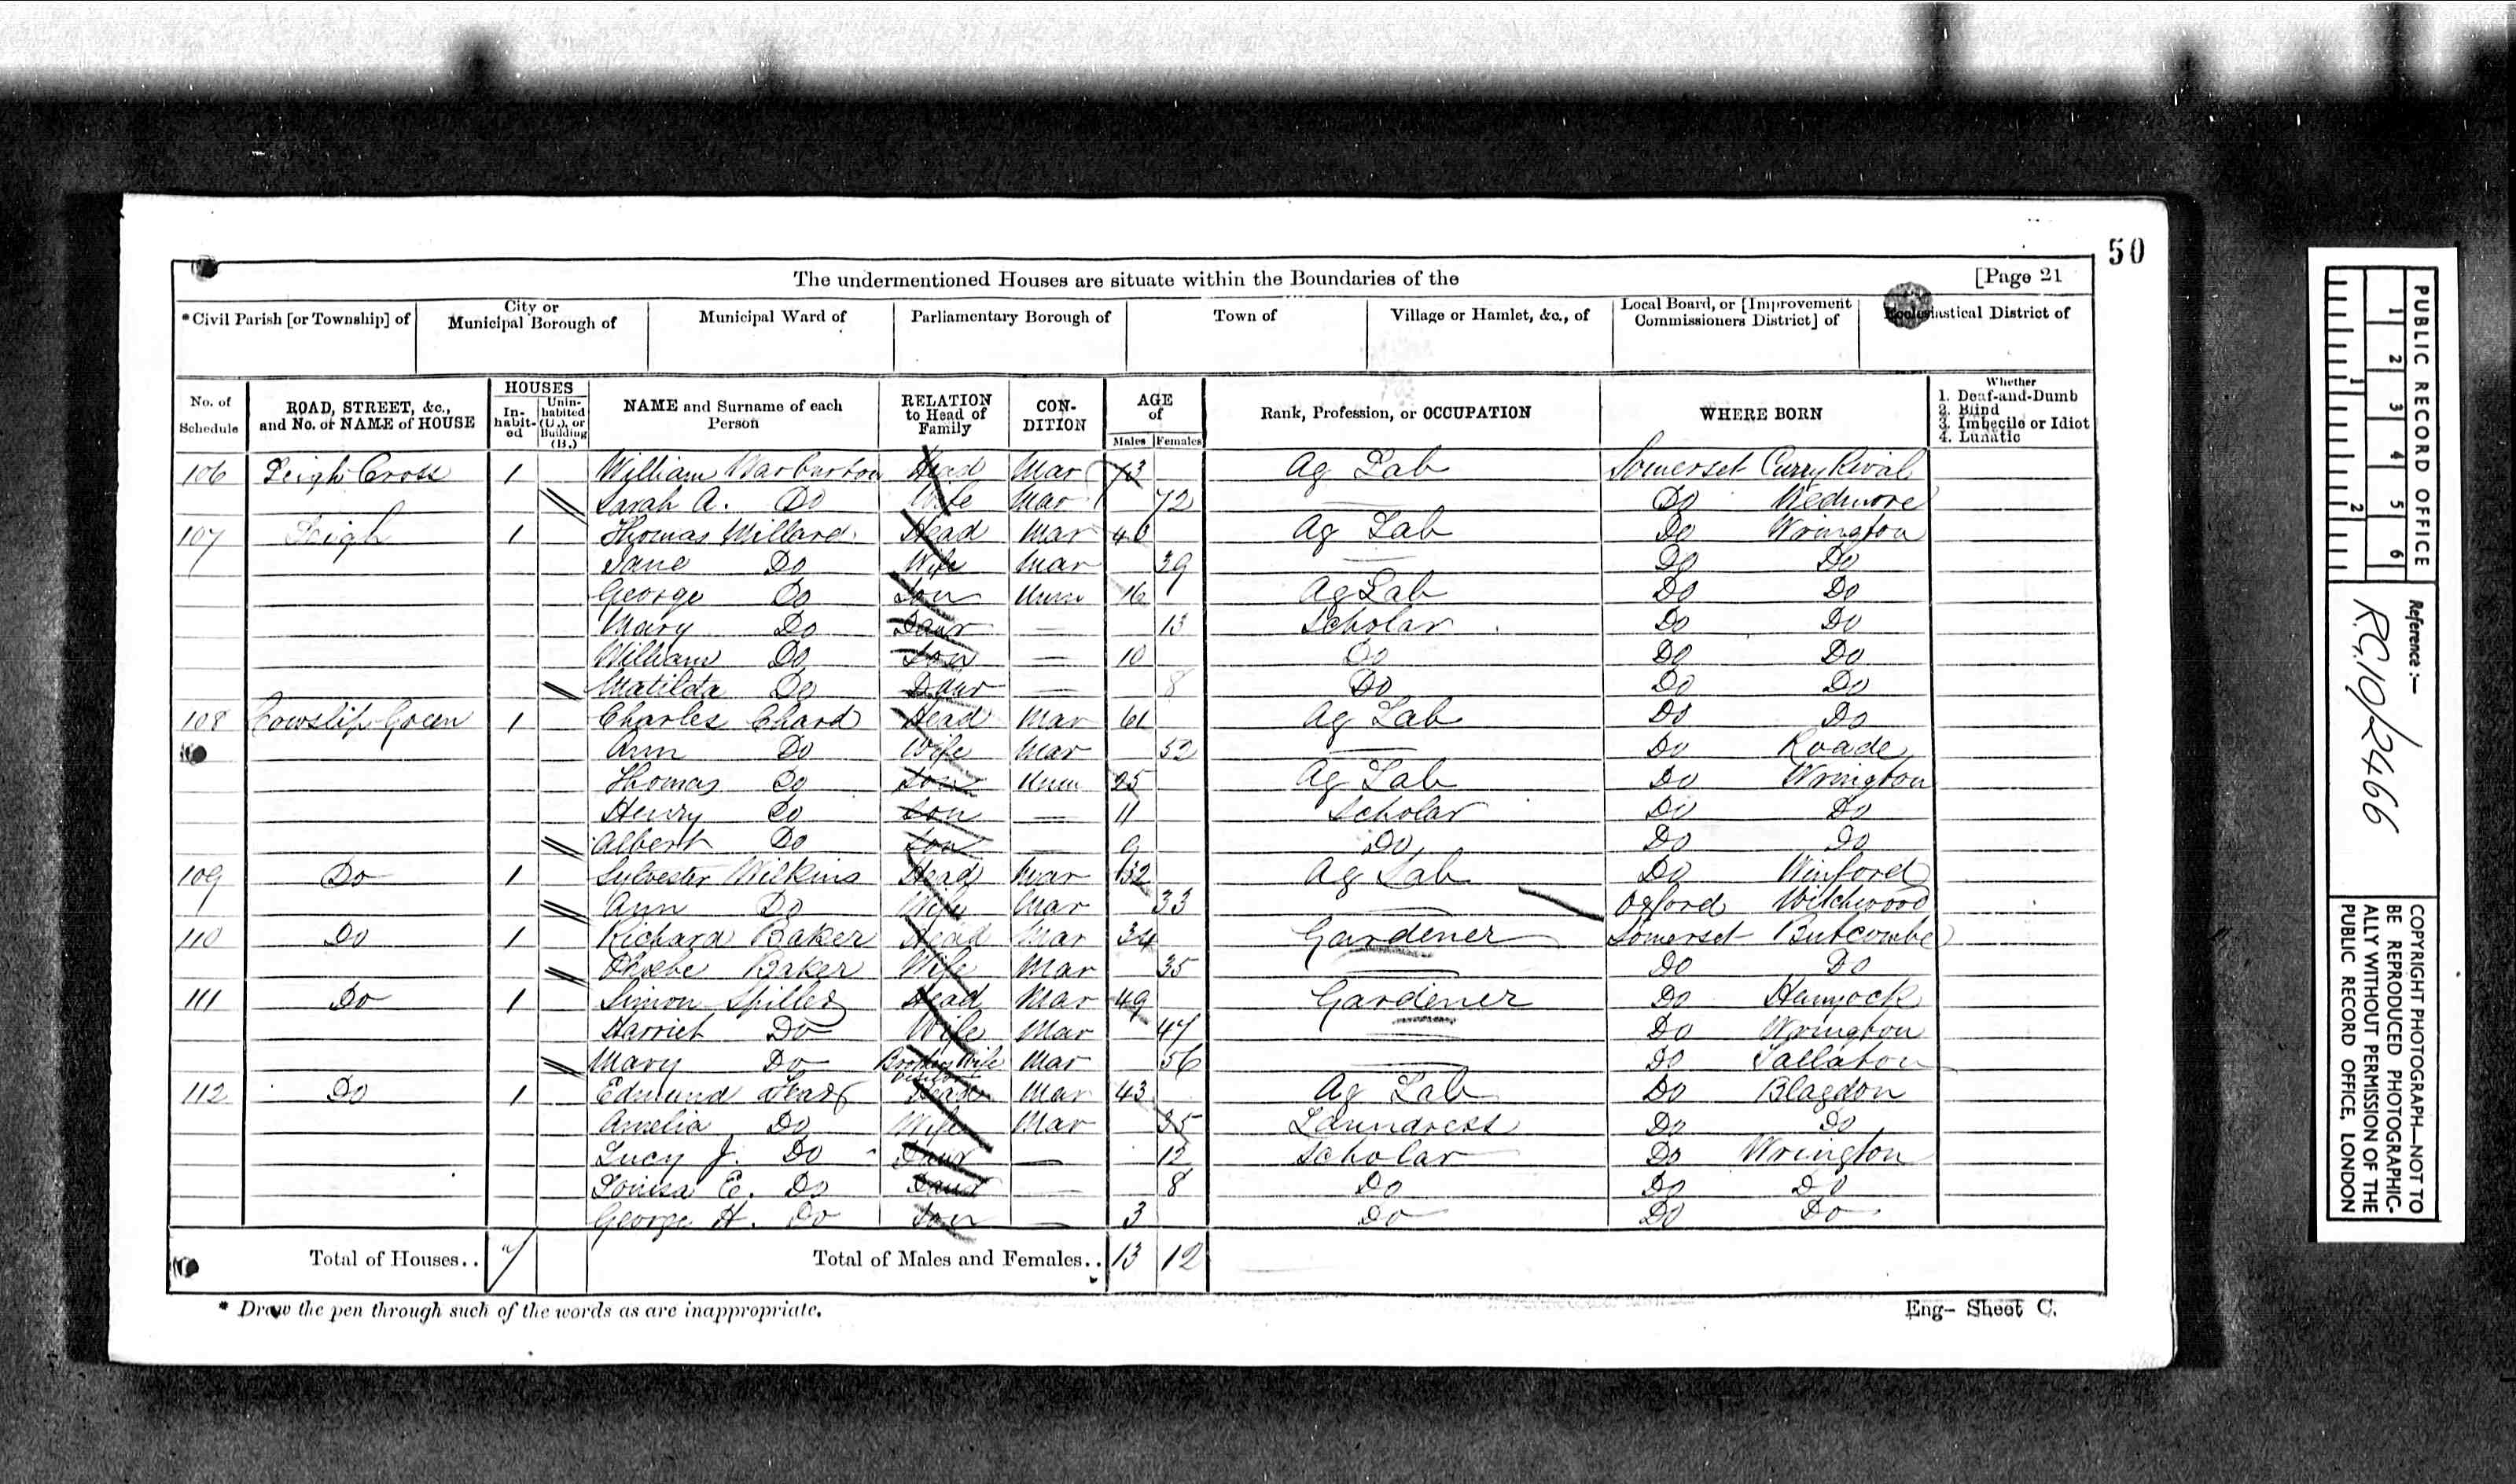 50
The undermentioned Houses are situate within the Boundaries of the [Page 21
*Civil Parish [or Township] of
City or Municipal Borough of
Municipal Ward of
Parliamentary Borough of
Town of
Village or Hamlet, &c., of
Local Board, or [Improvement Commissioners District] of
Ecclesiastical District of
No. of Schedule
ROAD, STREET, &c., and No. or NAME of HOUSE
HOUSES
In-habit-ed
Unin-habited (U.), or Building (B.)
NAME and Surname of each Person
RELATION to Head of Family
CON-DITION
AGE of
Males Females
Rank, Profession, or OCCUPATION
WHERE BORN
Whether
1. Deaf-and-Dumb
2. Blind
3. Imbecile or Idiot
4. Lunatic
106 Leigh Cross 1 William Warburton Head Mar 73 Ag Lab Somerset Curry Rival
Sarah A. Do Wife Mar 72 Do Wedmore
107 Leigh 1 Thomas Millard Head Mar 40 Ag Lab Do Wrington
Jane Do Wife Mar 39 Do Do
George Do Son Unm 16 Ag Lab Do Do
Mary Do Daur — 13 Scholar Do Do
William Do Son — 10 Do Do Do
Matilda Do Daur — 8 Do Do Do
108 Cowslip Green 1 Charles Chard Head Mar 61 Ag Lab Do Do
Ann Do Wife Mar 52 Do Roade
Thomas Do Son Unm 25 Ag Lab Do Wrington
Henry Do Son — 11 Scholar Do Do
Albert Do Son — 9 Do Do Do
109 Do 1 Sylvester Wilkins Head Mar 32 Ag Lab Do Winford
Ann Do Wife Mar 33 Oxford Witchwood
110 Do 1 Richard Baker Head Mar 34 Gardener Somerset Butcombe
Phœbe Baker Wife Mar 35 Do Do
111 Do 1 Simon Spiller Head Mar 49 Gardener Do Hemyock
Harriet Do Wife Mar 47 Do Wrington
Mary Do Brothers Wife Mar 56 Do Tallaton
112 Do 1 Edmund Head Mar 43 Ag Lab Do Blagdon
Amelia Do Wife Mar 35 Laundress Do Do
Lucy J. Do Daur — 12 Scholar Do Wrington
Louisa E. Do Daur — 8 Do Do Do
George H. Do Son — 3 Do Do Do
Total of Houses.. 7 Total of Males and Females.. 13 12
* Draw the pen through such of the words as are inappropriate.
Eng- Sheet C.
PUBLIC RECORD OFFICE
1 2 3 4 5 6
1 2
Reference :—
R.G. 10/2466
COPYRIGHT PHOTOGRAPH—NOT TO
BE REPRODUCED PHOTOGRAPHIC-
ALLY WITHOUT PERMISSION OF THE
PUBLIC RECORD OFFICE, LONDON